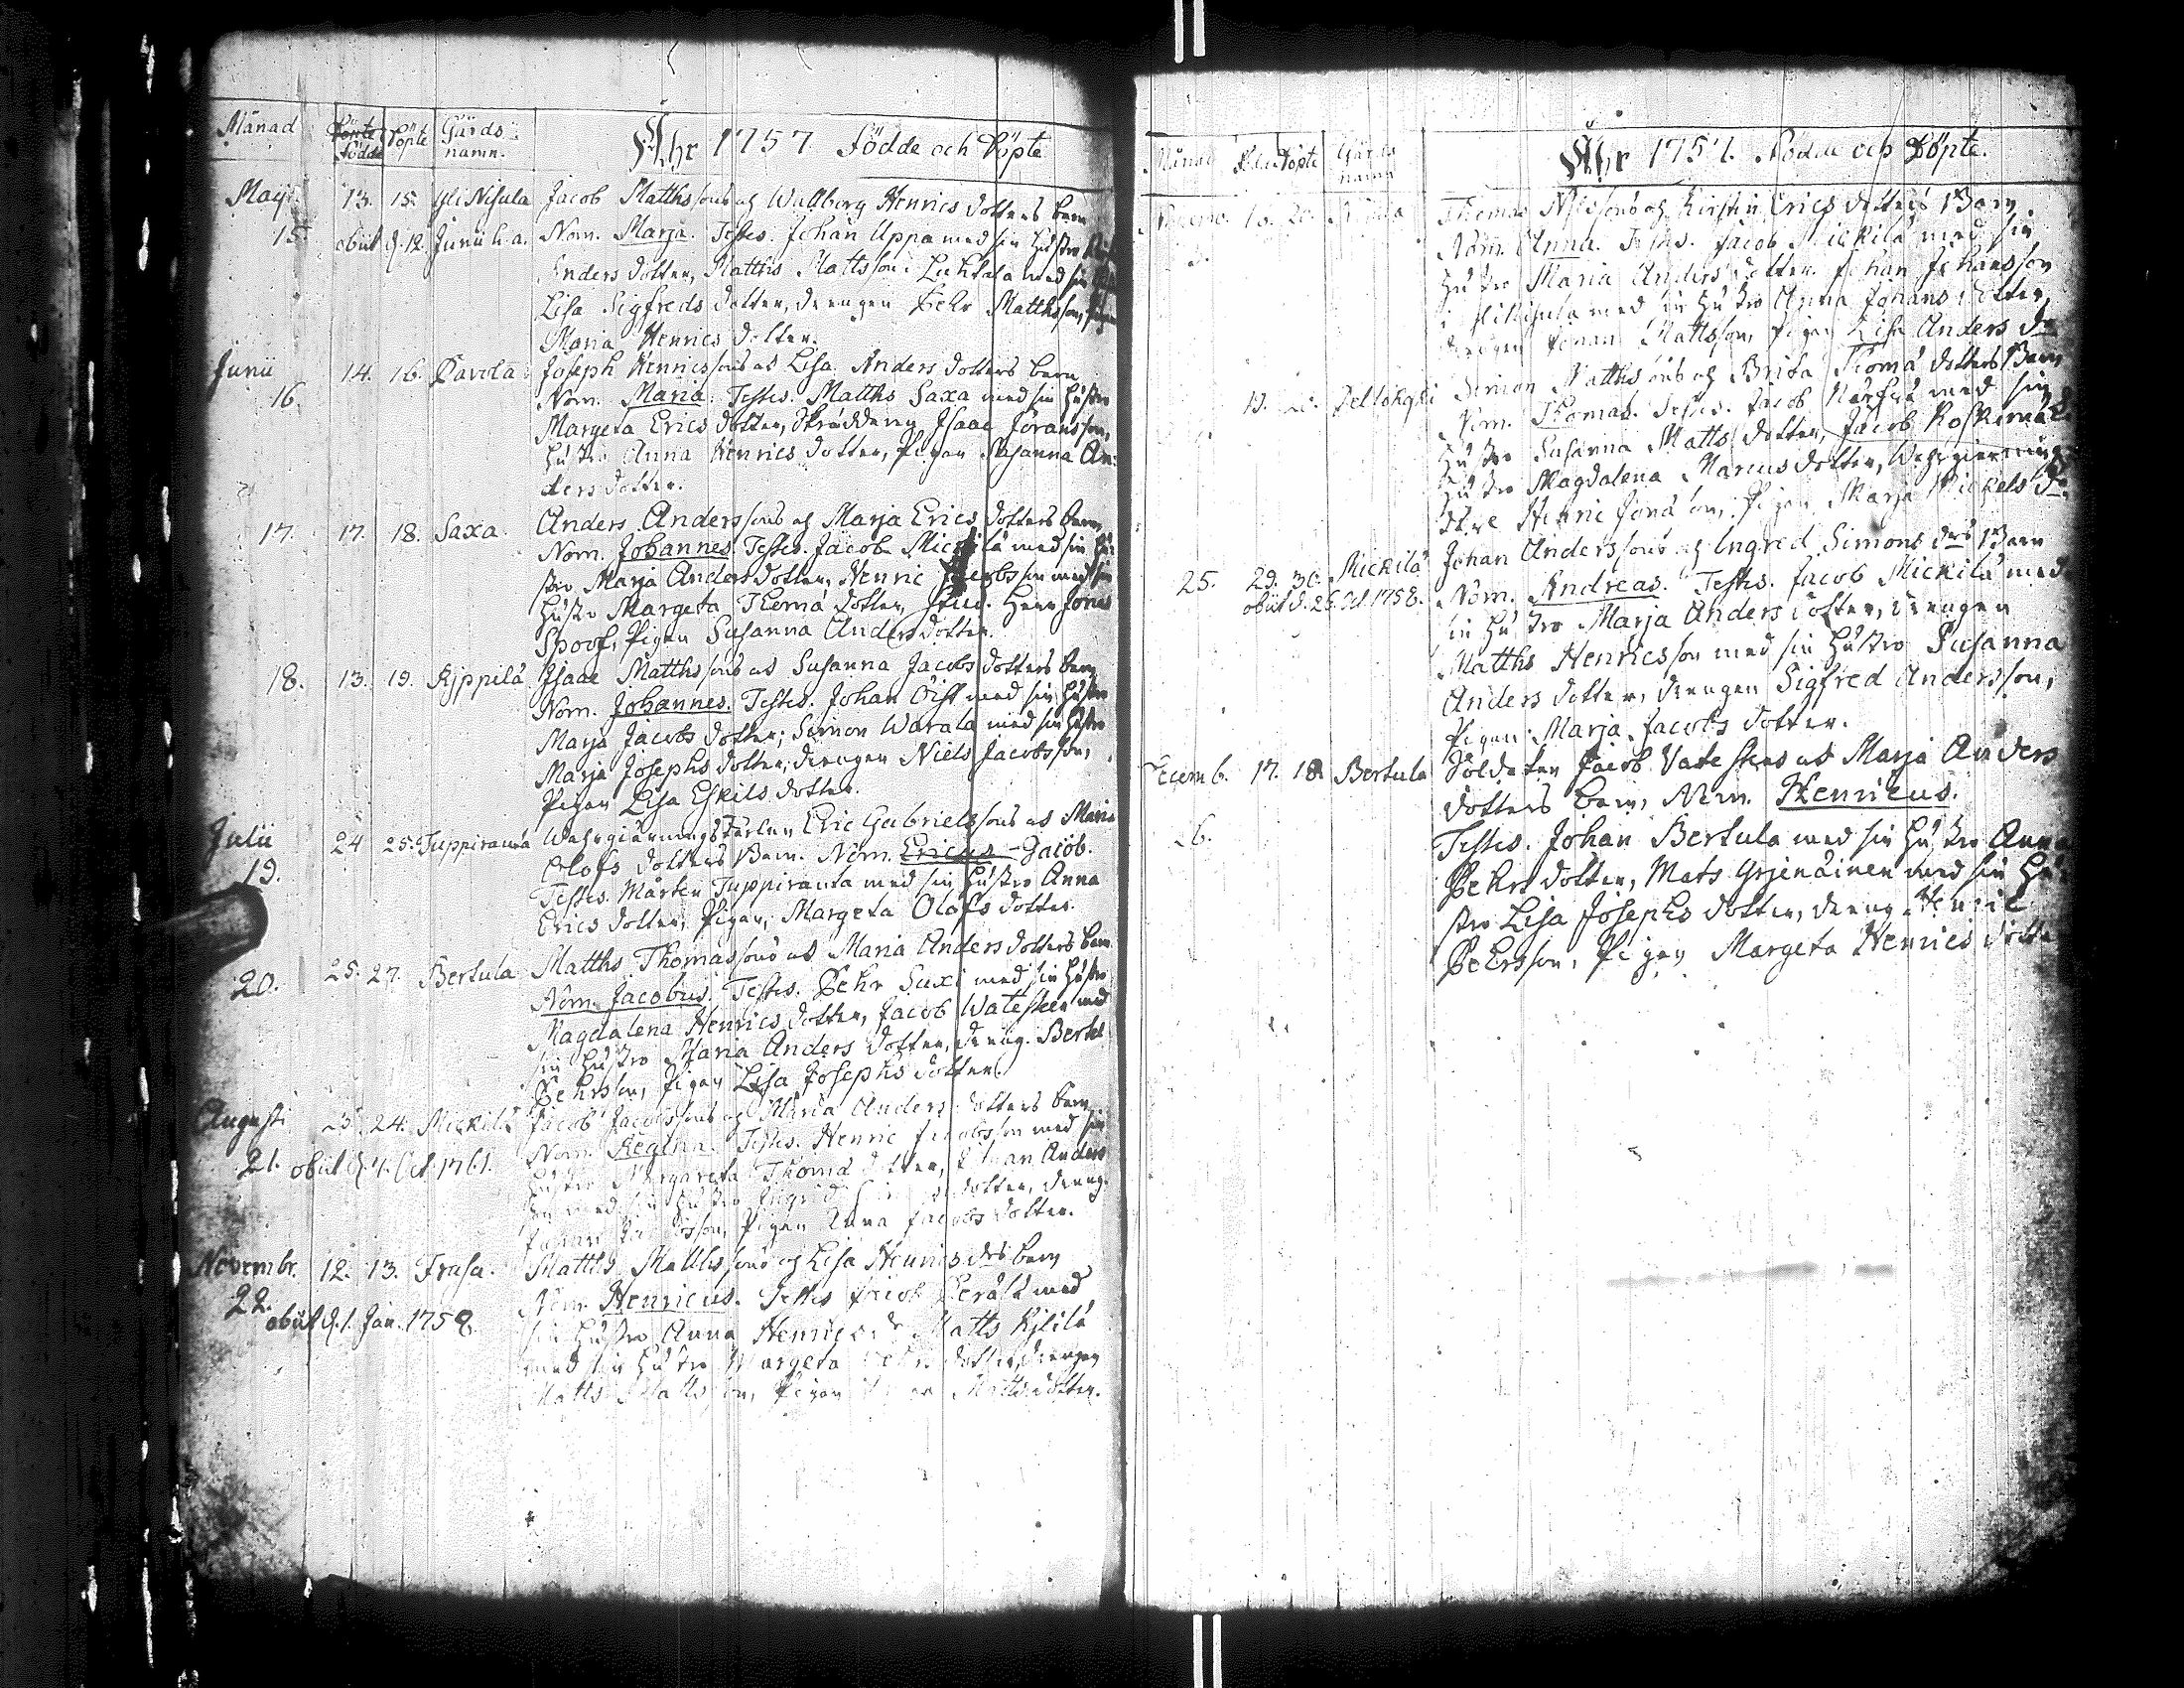 Månad Födde Döpte Gårds namn. Åhr 1757 Födde och Döpte
Maji 13. 15. Yli Nisula Jacob Matthssons och Wallborg Henrics dotters barn
15. obiit d. 12. Junii h. a. Nom. Marja. Testes. Johan Uppa med sin hustru
Anders dotter, Matths Mattsson Luhtala med sin
Lisa Sigfreds dotter, drengen Pehr Matthsson,
Maria Henrics dotter.
Junii 14. 16. Pavola Joseph Henricssons och Lisa Anders dotters barn
16. Nom. Maria. Testes. Matths Saxa med sin hustru
Margeta Erics dotter, Skrädderen Isaac Joransson,
hustru Anna Henrics dotter, Pigan Susanna An-
ders dotter.
17. 17. 18. Saxa. Anders Anderssons och Marja Erics dotters barn,
Nom. Johannes. Testes. Jacob Mickilä med sin hu-
stru Marja Anders dotter, Henric Jacobsson med sin
hustru Margeta Thomæ dotter, Stud. Herr Jonas
Spoof, Pigan Susanna Anders dotter.
18. 13. 19. Kyppilä Isaac Matthssons och Susanna Jacobs dotters barn
Nom. Johannes. Testes. Johan Öist med sin hustru
Marja Jacobs dotter; Simon Warala med sin hustru
Marja Josephs dotter, drengen Niels Jacobsson,
Pigan Lisa Eskils dotter.
Julii 24 25. Tuppiranta Eric Gabrielssons och Maria
19. Olofs dotters Barn. Nom. Ericus-Jacob.
Testes. Mårten Tuppiranta med sin hustru Anna
Erics dotter, Pigan, Margeta Olofs dotter.
20. 25. 27. Bertula Matths Thomassons och Maria Anders dotters barn
Nom. Jacobus. Testes. Pehr Saxi med sin hustru
Magdalena Henrics dotter, Jacob Watesten med
sin hustru Maria Anders dotter, dreng. Bertel
Pehrsson, Pigan Lisa Josephs dotter.
Augusti 23. 24. Mickilä Jacob Jacobssons och Maria Anders dotters barn
21. obiit d. 4. Oct. 1761. Nom. Regina. Testes. Henric Jacobsson med sin
hustru Margareta Thomæ dotter, Johan Anders
son med sin hustru Ingrid dotter, dreng.
Johan Jacobsson, Pigan Anna Jacobs dotter.
Novembr. 12. 13. Frusa. Matths Matthssons och Lisa Henrics drs barn
22. Nom. Henricus. Testes Jacob Perälä med
obiit d. 1. Jan. 1758. sin hustru Anna Henrics dr Matts Kylilä
med sin hustru Margeta dotter, drengen
Matts Mattsson, Pigan Matts dotter.
Månad Födde Döpte Gårds namn Åhr 1757. Födde och Döpte.
Thomas Nilssons och Kirstin Erics dotters Barn.
Nom. Anna. Testes. Jacob Mickilä med sin
hustru Maria Anders dotter. Johan Johansson
i med sin hustru Anna Johans dotter,
drengen Johan Mattsson, Pigan Lisa Anders dr
19. 20. Simon Matthssons och Brita Thomæ dotters Barn
Nom. Thomas. Testes. Jacob med sin
hustru Susanna Matts dotter, Jacob Koskimäki
hustru Magdalena Marcus dotter,
Henric Jonasson, Pigan Marja Mickels dr.
25. 29. 30. Mickilä Johan Anderssons och Ingred Simons drs Barn
obiit d. 26. Oct. 1758. Nom. Andreas. Testes. Jacob Mickilä med
sin hustru Marja Anders dotter, drengen
Matths Henricsson med sin hustru Susanna
Anders dotter, drengen Sigfred Andersson,
Pigan Marja Jacobs dotter.
Decemb. 17. 18. Bertula Soldaten Jacob Vatestens och Marja Anders
dotters barn, Nom. Henricus.
26. Testes. Johan Bertula med sin hustru Anna
Pehrs dotter, Mats Yrjenäinen med sin hu-
stru Lisa Josephs dotter, dreng. Henric
Pehrsson, Pigan Margeta Henrics dotter